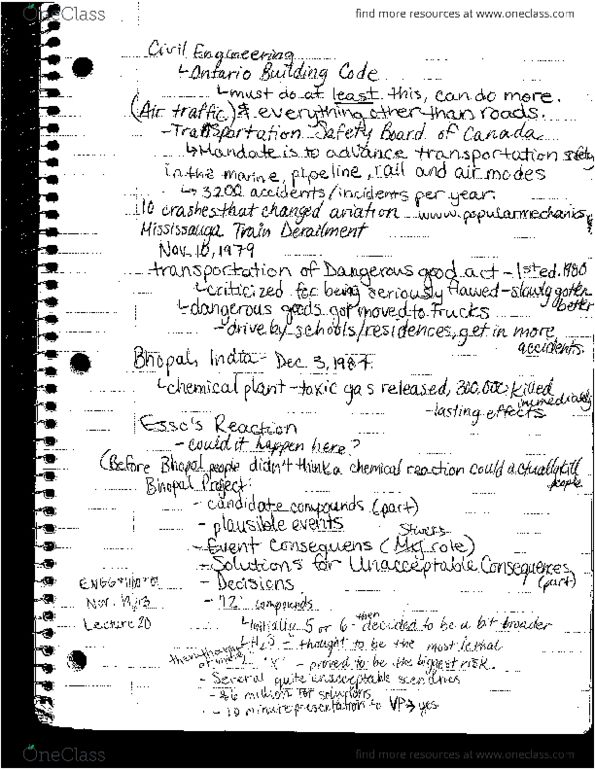 OneClass
find more resources at www.oneclass.com
Civil Engineering
↳ Ontario Building Code
↳ must do at least this, can do more.
(Air traffic) & everything other than roads.
- Transportation Safety Board of Canada
↳ Mandate is to advance transportation safety
in the marine, pipeline, rail and air modes
↳ 3200 accidents/incidents per year.
10 crashes that changed aviation www.popularmechanics
Mississauga Train Derailment
Nov. 10, 1979
transportation of Dangerous good act - 1st ed. 1980
↳ criticized for being seriously flawed - slowly gotten better
↳ dangerous goods got moved to trucks
- drive by schools/residences, get in more accidents.
Bhopal, India - Dec. 3, 1984
↳ chemical plant - toxic gas released, killed immediately
- lasting effects
Esso's Reaction
- could it happen here?
(Before Bhopal people didn't think a chemical reaction could actually kill people
Bhopal Project:
- candidate compounds (part)
- plausible events
Stivers
- Event Consequens (My role)
- Solutions for Unacceptable Consequences (part)
- Decisions
- 12 compounds
↳ initially 5 or 6 - then decided to be a bit broader
↳ H2S - thought to be the most lethal
"X" - proved to be the biggest risk.
- Several quite unacceptable scenarios
- $6 million for solutions
- 10 minute presentation to VP → yes
Nov. 19/13
Lecture 20
OneClass
find more resources at www.oneclass.com